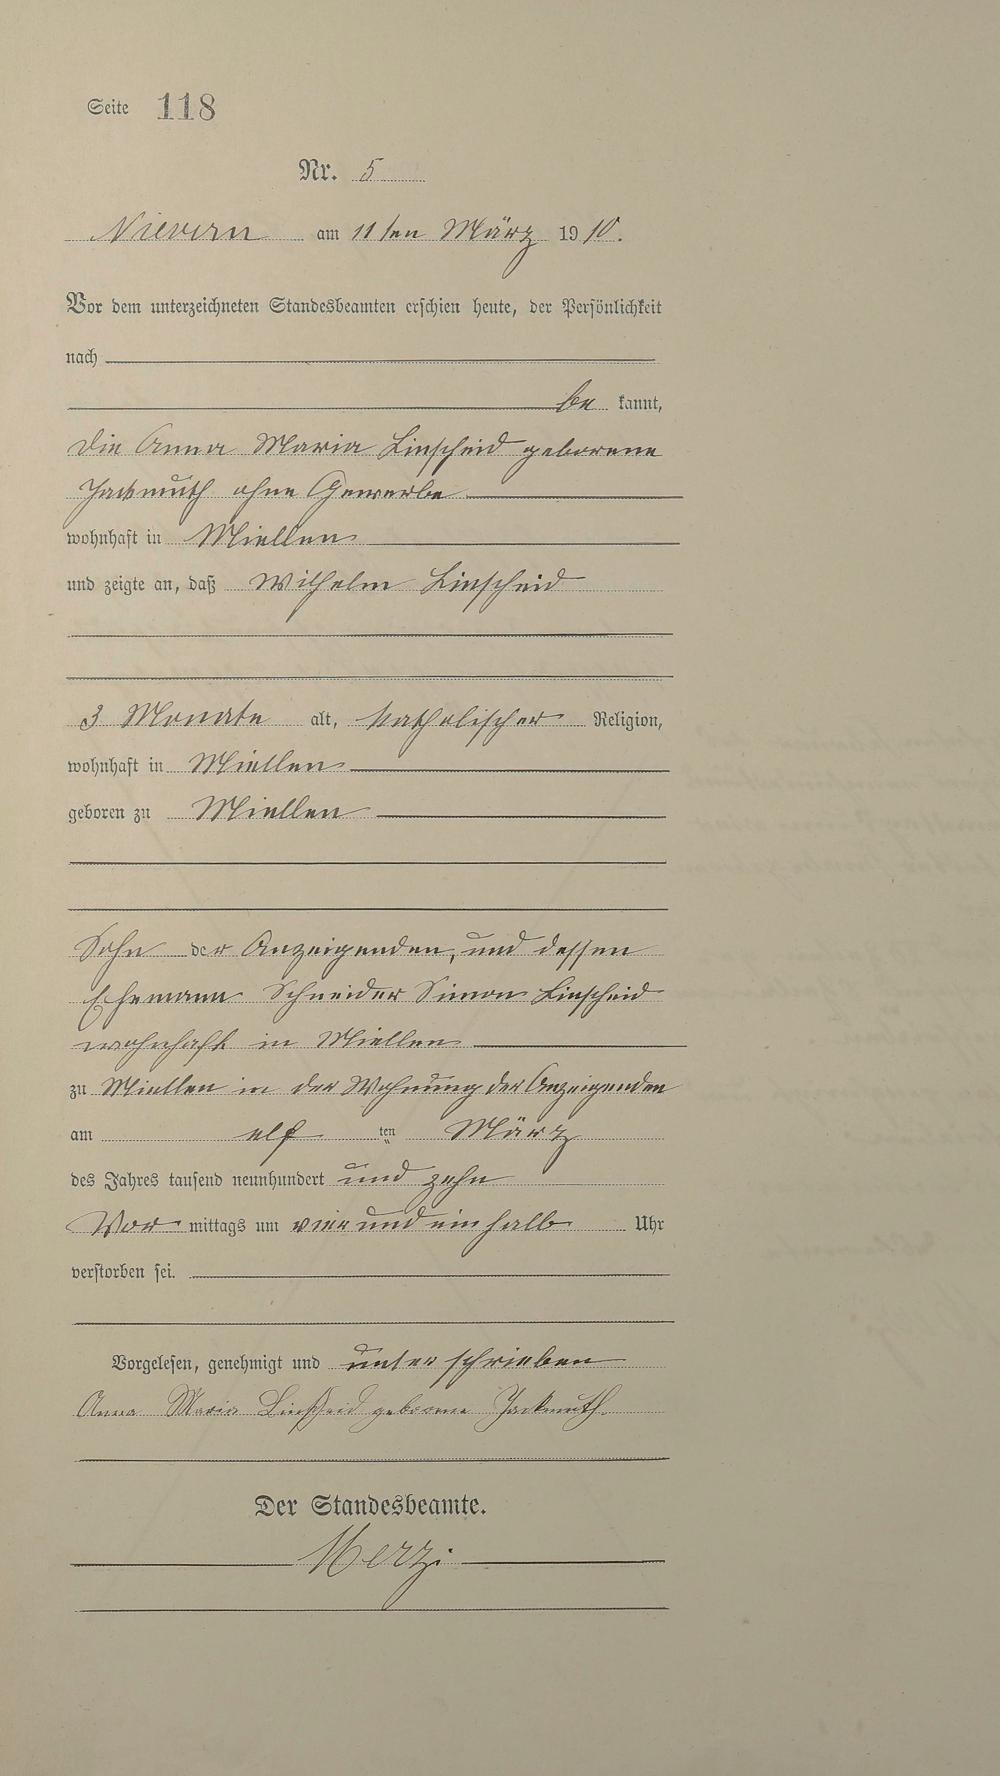 Seite 118
Nr. 5
Nievern am 11ten März 1910.
Vor dem unterzeichneten Standesbeamten erschien heute, der Persönlichkeit
nach
be kannt,
die Anna Maria Linscheid geborene
Jackmuth ohne Gewerbe
wohnhaft in Miellen
und zeigte an, daß Wilhelm Linscheid
3 Monate alt, katholischer Religion,
wohnhaft in Miellen
geboren zu Miellen
Sohn der Anzeigenden, und dessen
Ehemann Schneider Simon Linscheid
wohnhaft in Miellen
zu Miellen in der Wohnung der Anzeigenden
am elf ten März
des Jahres tausend neunhundert und zehn
Vor mittags um vier und ein halb Uhr
verstorben sei.
Vorgelesen, genehmigt und unterschrieben
Anna Maria Linscheid geborene Jackmuth
Der Standesbeamte.